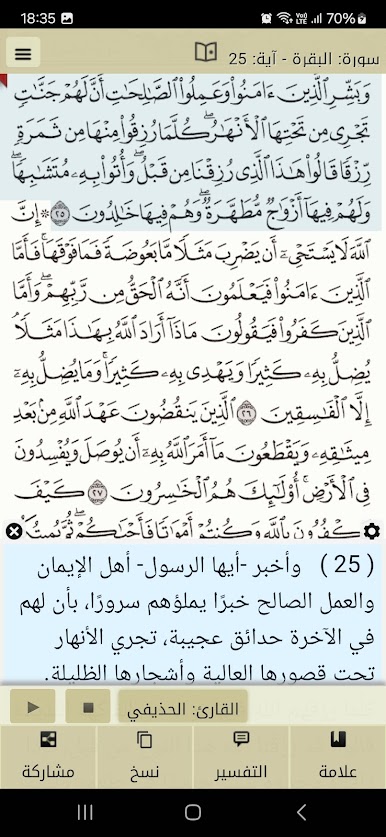 18:35
Vo) LTE 70%
سورة: البقرة - آية: 25
وَبَشِّرِ الَّذِينَ ءَامَنُوا۟ وَعَمِلُوا۟ الصَّالِحَاتِ أَنَّ لَهُمْ جَنَّاتٍ
تَجْرِى مِن تَحْتِهَا الْأَنْهَارُ ۖ كُلَّمَا رُزِقُوا۟ مِنْهَا مِن ثَمَرَةٍ
رِّزْقًا قَالُوا۟ هَٰذَا الَّذِى رُزِقْنَا مِن قَبْلُ ۖ وَأُتُوا۟ بِهِۦ مُتَشَابِهًا ۖ
وَلَهُمْ فِيهَا أَزْوَاجٌ مُّطَهَّرَةٌ ۖ وَهُمْ فِيهَا خَالِدُونَ ٢٥ ۞ إِنَّ
اللَّهَ لَا يَسْتَحْىِۦٓ أَن يَضْرِبَ مَثَلًا مَّا بَعُوضَةً فَمَا فَوْقَهَا ۚ فَأَمَّا
الَّذِينَ ءَامَنُوا۟ فَيَعْلَمُونَ أَنَّهُ الْحَقُّ مِن رَّبِّهِمْ ۖ وَأَمَّا
الَّذِينَ كَفَرُوا۟ فَيَقُولُونَ مَاذَآ أَرَادَ اللَّهُ بِهَٰذَا مَثَلًا ۘ
يُضِلُّ بِهِۦ كَثِيرًا وَيَهْدِى بِهِۦ كَثِيرًا ۚ وَمَا يُضِلُّ بِهِۦٓ
إِلَّا الْفَاسِقِينَ ٢٦ الَّذِينَ يَنقُضُونَ عَهْدَ اللَّهِ مِن بَعْدِ
مِيثَاقِهِۦ وَيَقْطَعُونَ مَآ أَمَرَ اللَّهُ بِهِۦٓ أَن يُوصَلَ وَيُفْسِدُونَ
فِى الْأَرْضِ ۚ أُو۟لَٰٓئِكَ هُمُ الْخَاسِرُونَ ٢٧ كَيْفَ
تَكْفُرُونَ بِاللَّهِ وَكُنتُمْ أَمْوَاتًا فَأَحْيَاكُمْ ۖ ثُمَّ يُمِيتُ
( 25 ) وأخبر -أيها الرسول- أهل الإيمان
والعمل الصالح خبرًا يملؤهم سرورًا، بأن لهم
في الآخرة حدائق عجيبة، تجري الأنهار
تحت قصورها العالية وأشجارها الظليلة.
القارئ: الحذيفي
علامة
التفسير
نسخ
مشاركة